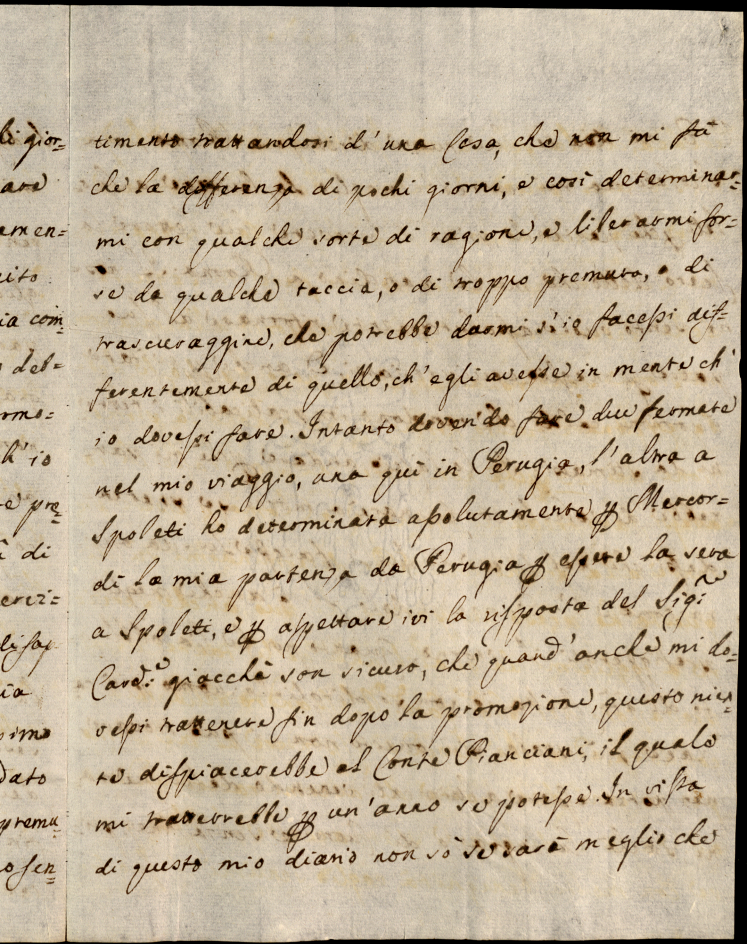 li gior=
are
amen=
cito
ia com=
del=
ermo=
h' io
e pre=
di
erci=
di sap
ia
simo
dato
premu=
o sen=
timento trattandosi d' una Cosa, che non mi fà
che la differenza di pochi giorni, e così determinar=
mi con qualche sorte di ragione, e liberarmi for=
se da qualche taccia, o di troppo premura, o di
trascuraggine, che potrebbe darmi s' io facessi dif=
ferentemente di quello, ch' egli avesse in mente ch'
io dovessi fare. Intanto dovendo fare due fermate
nel mio viaggio, una quì in Perugia, l' altra a
Spoleti ho determinata assolutamente p Mercor=
dì la mia partenza da Perugia p essere la sera
a Spoleti, e p aspettare ivi la risposta del Sig.r
Card.e giacchè son sicuro, che quand' anche mi do=
vessi trattenere fin dopo la promozione, questo nien=
te dispiacerebbe al Conte Pianciani, il quale
mi tratterrebbe p un' anno se potesse. In vista
di questo mio diario non sò se sarà meglio che